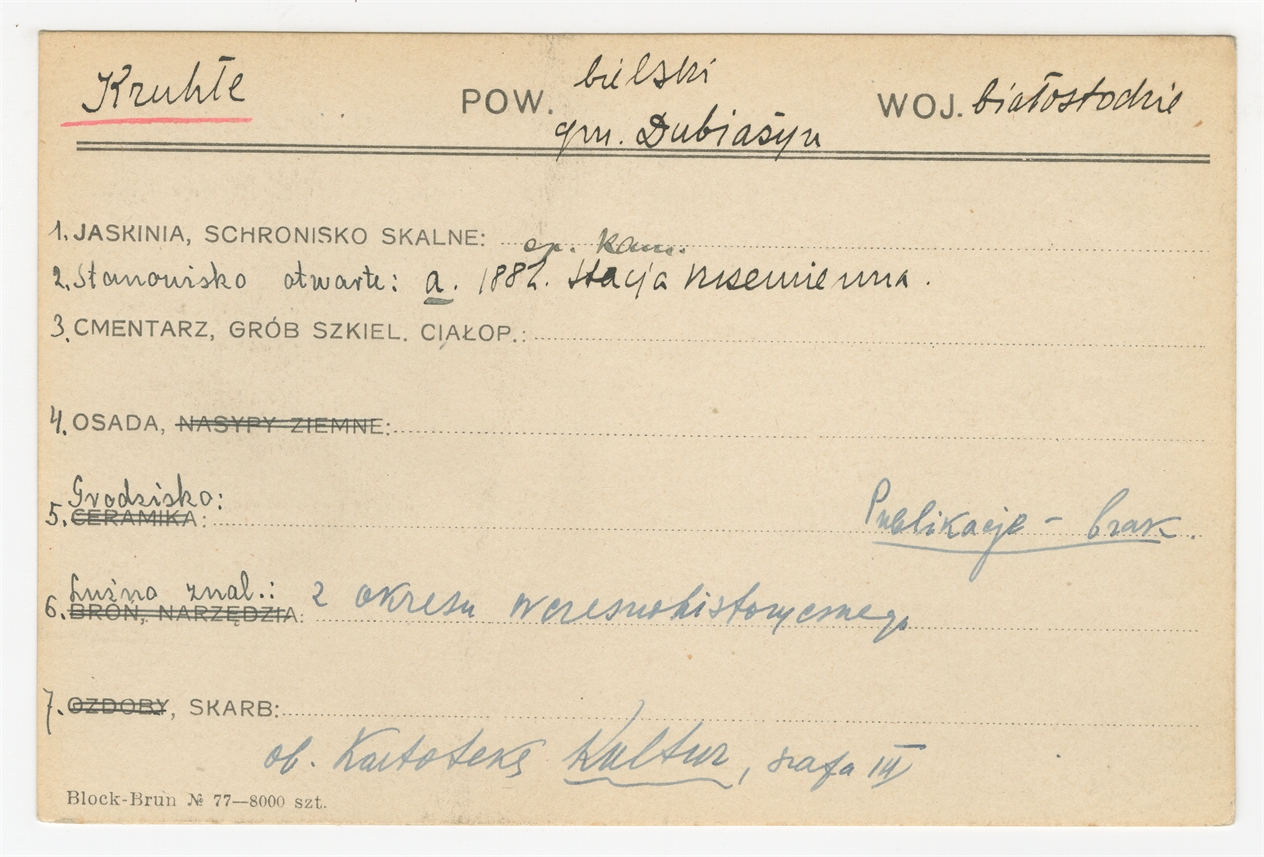 Kruhłe POW. bielski WOJ. białostockie
gm. Dubiażyn
1. JASKINIA, SCHRONISKO SKALNE:
ep. kam.
2. Stanowisko otwarte: a. 1882. Stacja krzemienna.
3. CMENTARZ, GRÓB SZKIEL. CIAŁOP.:
4. OSADA, NASYPY ZIEMNE:
Grodzisko:
5. CERAMIKA: Publikacje - brak.
Luźno znal.: z okresu wczesnohistorycznego
6. BROŃ, NARZĘDZIA:
7. OZDOBY, SKARB:
ob. Kartotekę Kultur, szafa III
Block-Brun № 77—8000 szt.